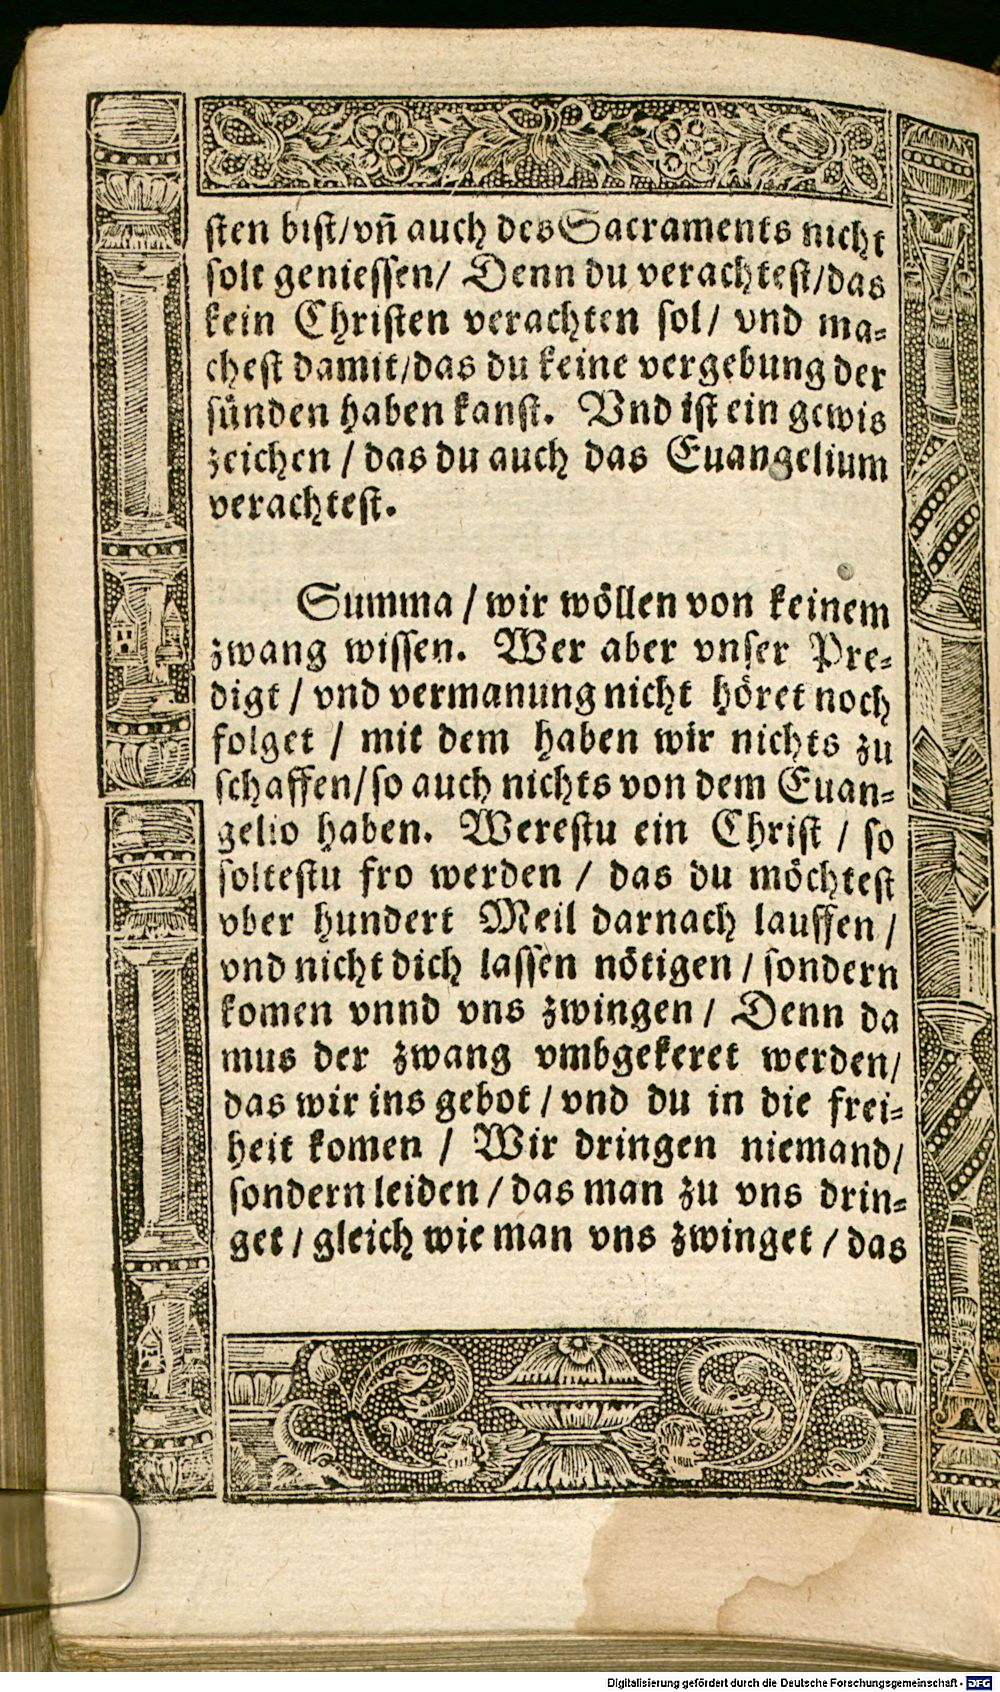 sten bist/vñ auch des Sacraments nicht
solt geniessen/ Denn du verachtest/das
kein Christen verachten sol/ vnd ma-
chest damit/das du keine vergebung der
sünden haben kanst. Vnd ist ein gewis
zeichen / das du auch das Euangelium
verachtest.
Summa / wir wöllen von keinem
zwang wissen. Wer aber vnser Pre-
digt / vnd vermanung nicht höret noch
folget / mit dem haben wir nichts zu
schaffen/so auch nichts von dem Euan-
gelio haben. Werestu ein Christ / so
soltestu fro werden / das du möchtest
vber hundert Meil darnach lauffen /
vnd nicht dich lassen nötigen / sondern
komen vnnd vns zwingen / Denn da
mus der zwang vmbgekeret werden/
das wir ins gebot / vnd du in die frei-
heit komen / Wir dringen niemand/
sondern leiden / das man zu vns drin-
get / gleich wie man vns zwinget / das
Digitalisierung gefördert durch die Deutsche Forschungsgemeinschaft - DFG